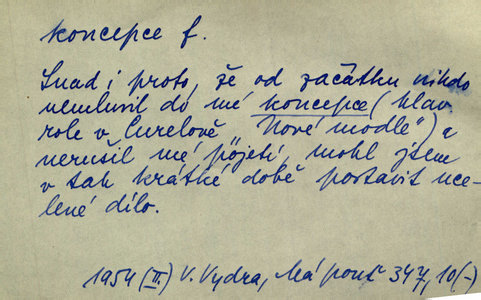 koncepce f.
Snad i proto, že od začátku nikdo
nemluvil do mé koncepce (hlav.
role v Curelově "Nové modle") a
nerušil mé pojetí, mohl jsem
v tak krátké době postavit uce-
lené dílo.
1954 (II.) V. Vydra, Má pouť 347, 10 (-)